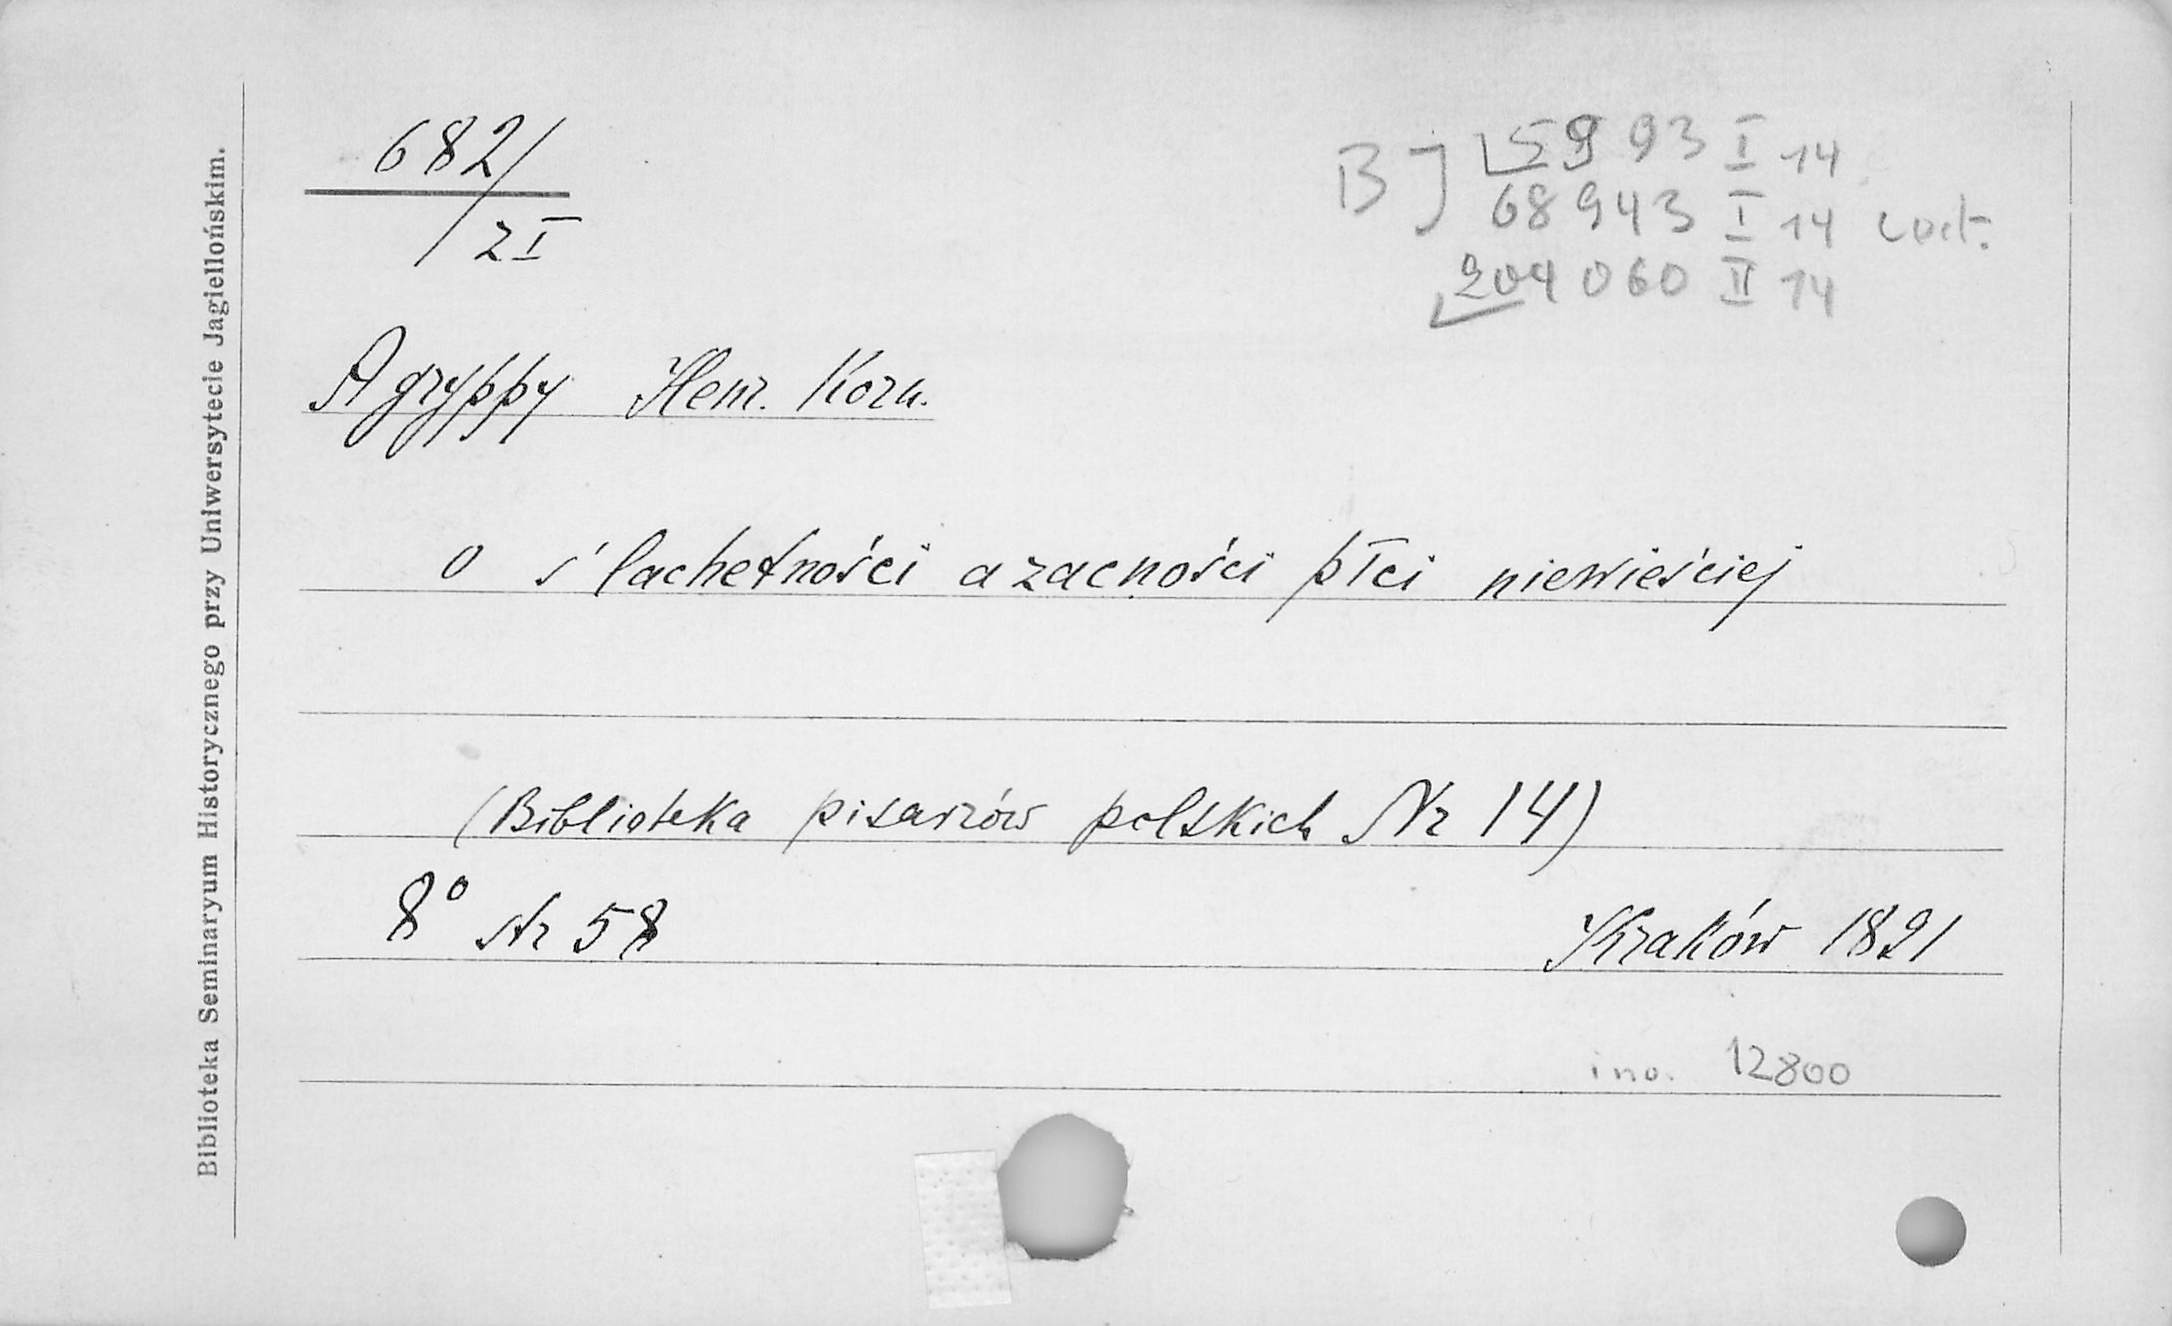 Biblioteka Seminaryum Historycznego przy Uniwersytecie Jagiellońskim.
682/
zI
BJ 5993 I 14
68943 I 14
204060 II 14
Agryppy Henr. Korn.
o ślachetności a zacności płci niewieściej
(Biblioteka pisarzów polskich Nr 14)
8° str 58
Kraków 1891
inv. 12800